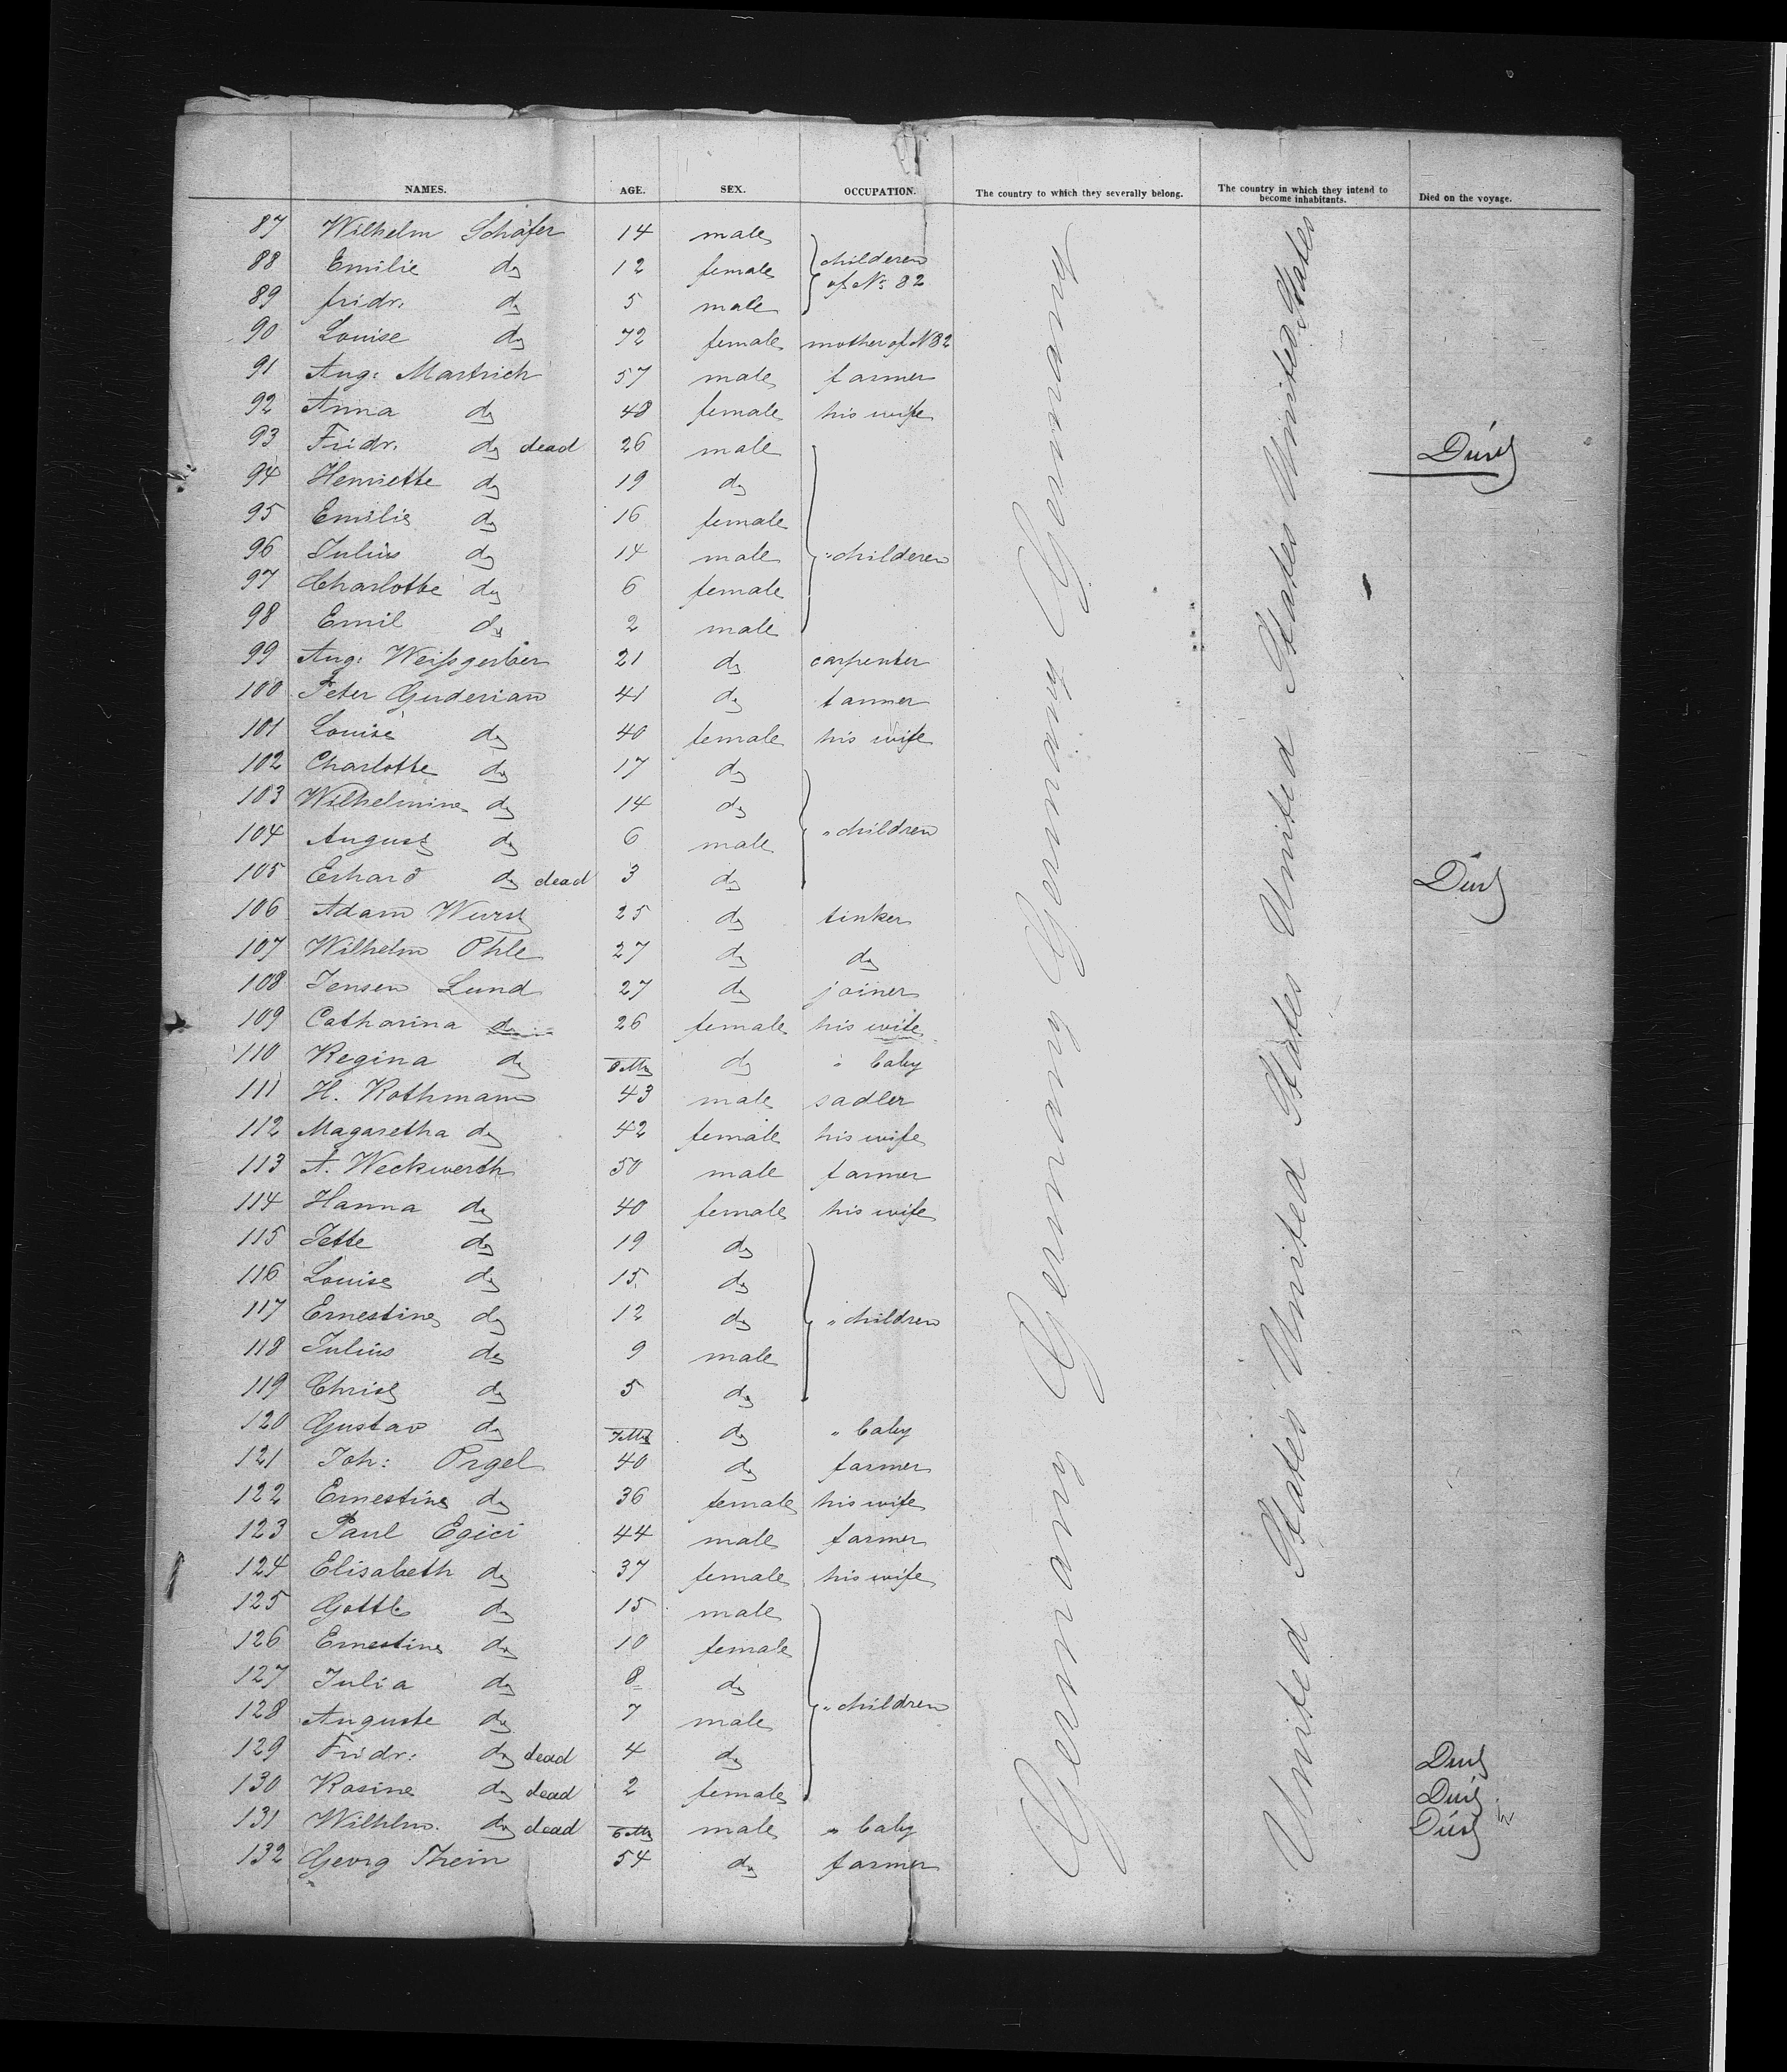 NAMES. AGE. SEX. OCCUPATION. The country to which they severally belong. The country in which they intend to become inhabitants. Died on the voyage.
87 Wilhelm Schäfer 14 male
88 Emilie do 12 female childeren of No 82
89 fridr. do 5 male
90 Louise do 72 female mother of N 82
91 Aug: Martrich 57 male farmer
92 Anna do 48 female his wife
93 Fridr. do dead 26 male Died
94 Henriette do 19 do
95 Emilie do 16 female
96 Julius do 14 male " childeren
97 Charlotte do 6 female
98 Emil do 2 male
99 Aug: Weißgerber 21 do carpenter
100 Peter Guderian 41 do farmer
101 Louise do 40 female his wife
102 Charlotte do 17 do
103 Wilhelmine do 14 do
104 August do 6 male " children
105 Erhard do dead 3 do Died
106 Adam Wurst 25 do tinker
107 Wilhelm Ohle 27 do do
108 Jensen Lund 27 do joiner
109 Catharina do 26 female his wife
110 Regina do do " baby
111 H. Rothmann 43 male sadler
112 Magaretha do 42 female his wife
113 A. Weckwerth 50 male farmer
114 Hanna do 40 female his wife
115 Jette do 19 do
116 Louise do 15 do
117 Ernestine do 12 do " children
118 Julius do 9 male
119 Christ do 5 do
120 Gustav do do " baby
121 Joh: Orgel 40 do farmer
122 Ernestine do 36 female his wife
123 Paul Egici 44 male farmer
124 Elisabeth do 37 female his wife
125 Gottl. do 15 male
126 Ernestine do 10 female
127 Julia do 8 do
128 Auguste do 7 male " children
129 Fridr: do dead 4 do Died
130 Rosine do dead 2 female Died
131 Wilhlm. do dead male " baby Died
132 Georg Thein 54 do farmer
Germany Germany Germany Germany Germany
United States United States United States United States United States